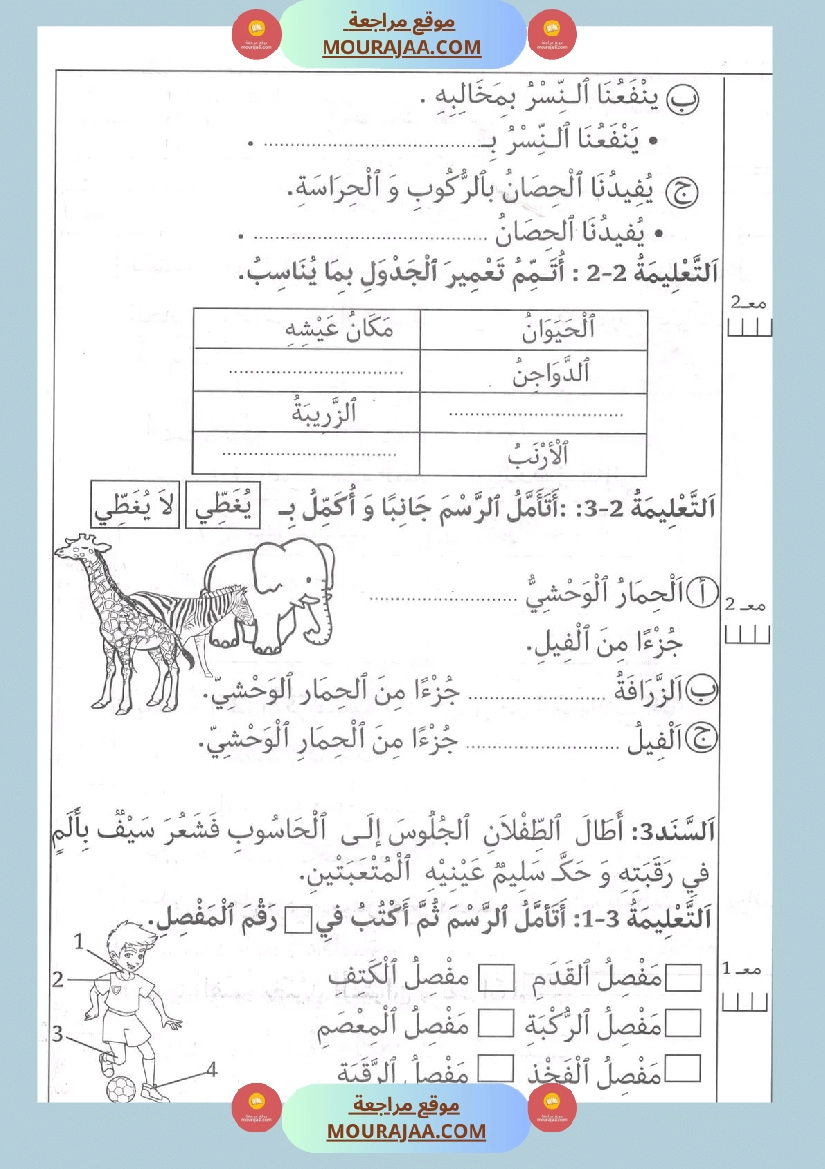 موقع مراجعة
MOURAJAA.COM
ب يَنْفَعُنَا ٱلنِّسْرُ بِمَخَالِبِهِ .
• يَنْفَعُنَا ٱلنِّسْرُ بِـ.................................... .
ج يُفِيدُنَا ٱلْحِصَانُ بِٱلرُّكُوبِ وَ ٱلْحِرَاسَةِ.
• يُفيدُنَا ٱلحِصَانُ ...................................... .
اَلتَّعْلِيمَةُ 2-2 : أُتَمِّمُ تَعْمِيرَ ٱلْجَدْوَلِ بِمَا يُنَاسِبُ.
معـ2
ٱلْحَيَوَانُ مَكَانُ عَيْشِهِ
ٱلدَّوَاجِنُ ..............................
.............................. ٱلزَّرِيبَةُ
ٱلْأَرْنَبُ ..............................
اَلتَّعْلِيمَةُ 2-3: :أَتَأَمَّلُ ٱلرَّسْمَ جَانِبًا وَ أُكَمِّلُ بِـ يُغَطِّي لاَ يُغَطِّي
أ اَلْحِمَارُ ٱلْوَحْشِيُّ ........................
معـ 2
جُزْءًا مِنَ ٱلْفِيلِ.
ب اَلزَّرَافَةُ ........................ جُزْءًا مِنَ ٱلحِمَارِ ٱلوَحْشِيّ.
ج اَلْفِيلُ .......................... جُزْءًا مِنَ ٱلْحِمَارِ ٱلْوَحْشِيِّ.
اَلسَّنَد3: أَطَالَ ٱلطِّفْلاَنِ ٱلجُلُوسَ إِلَى ٱلْحَاسُوبِ فَشَعُرَ سَيْفٌ بِأَلَمٍ
فِي رَقَبَتِهِ وَ حَكَّ سَلِيمٌ عَيْنِيْهِ ٱلْمُتْعَبَتْينِ.
اَلتَّعْلِيمَةُ 3-1: أَتَأَمَّلُ ٱلرَّسْمَ ثُمَّ أَكْتُبُ فِي رَقْمَ ٱلْمَفْصِلِ.
معـ 1
مَفْصِلُ ٱلقَدَمِ مفْصِلُ ٱلْكَتفِ
مَفْصِلُ ٱلرُّكْبَةِ مَفْصِلُ ٱلْمِعْصَمِ
مَفْصِلُ ٱلْفَخْذِ مَفْصِلُ ٱلرَّقَبَةِ
1
2
3
4
موقع مراجعة
MOURAJAA.COM